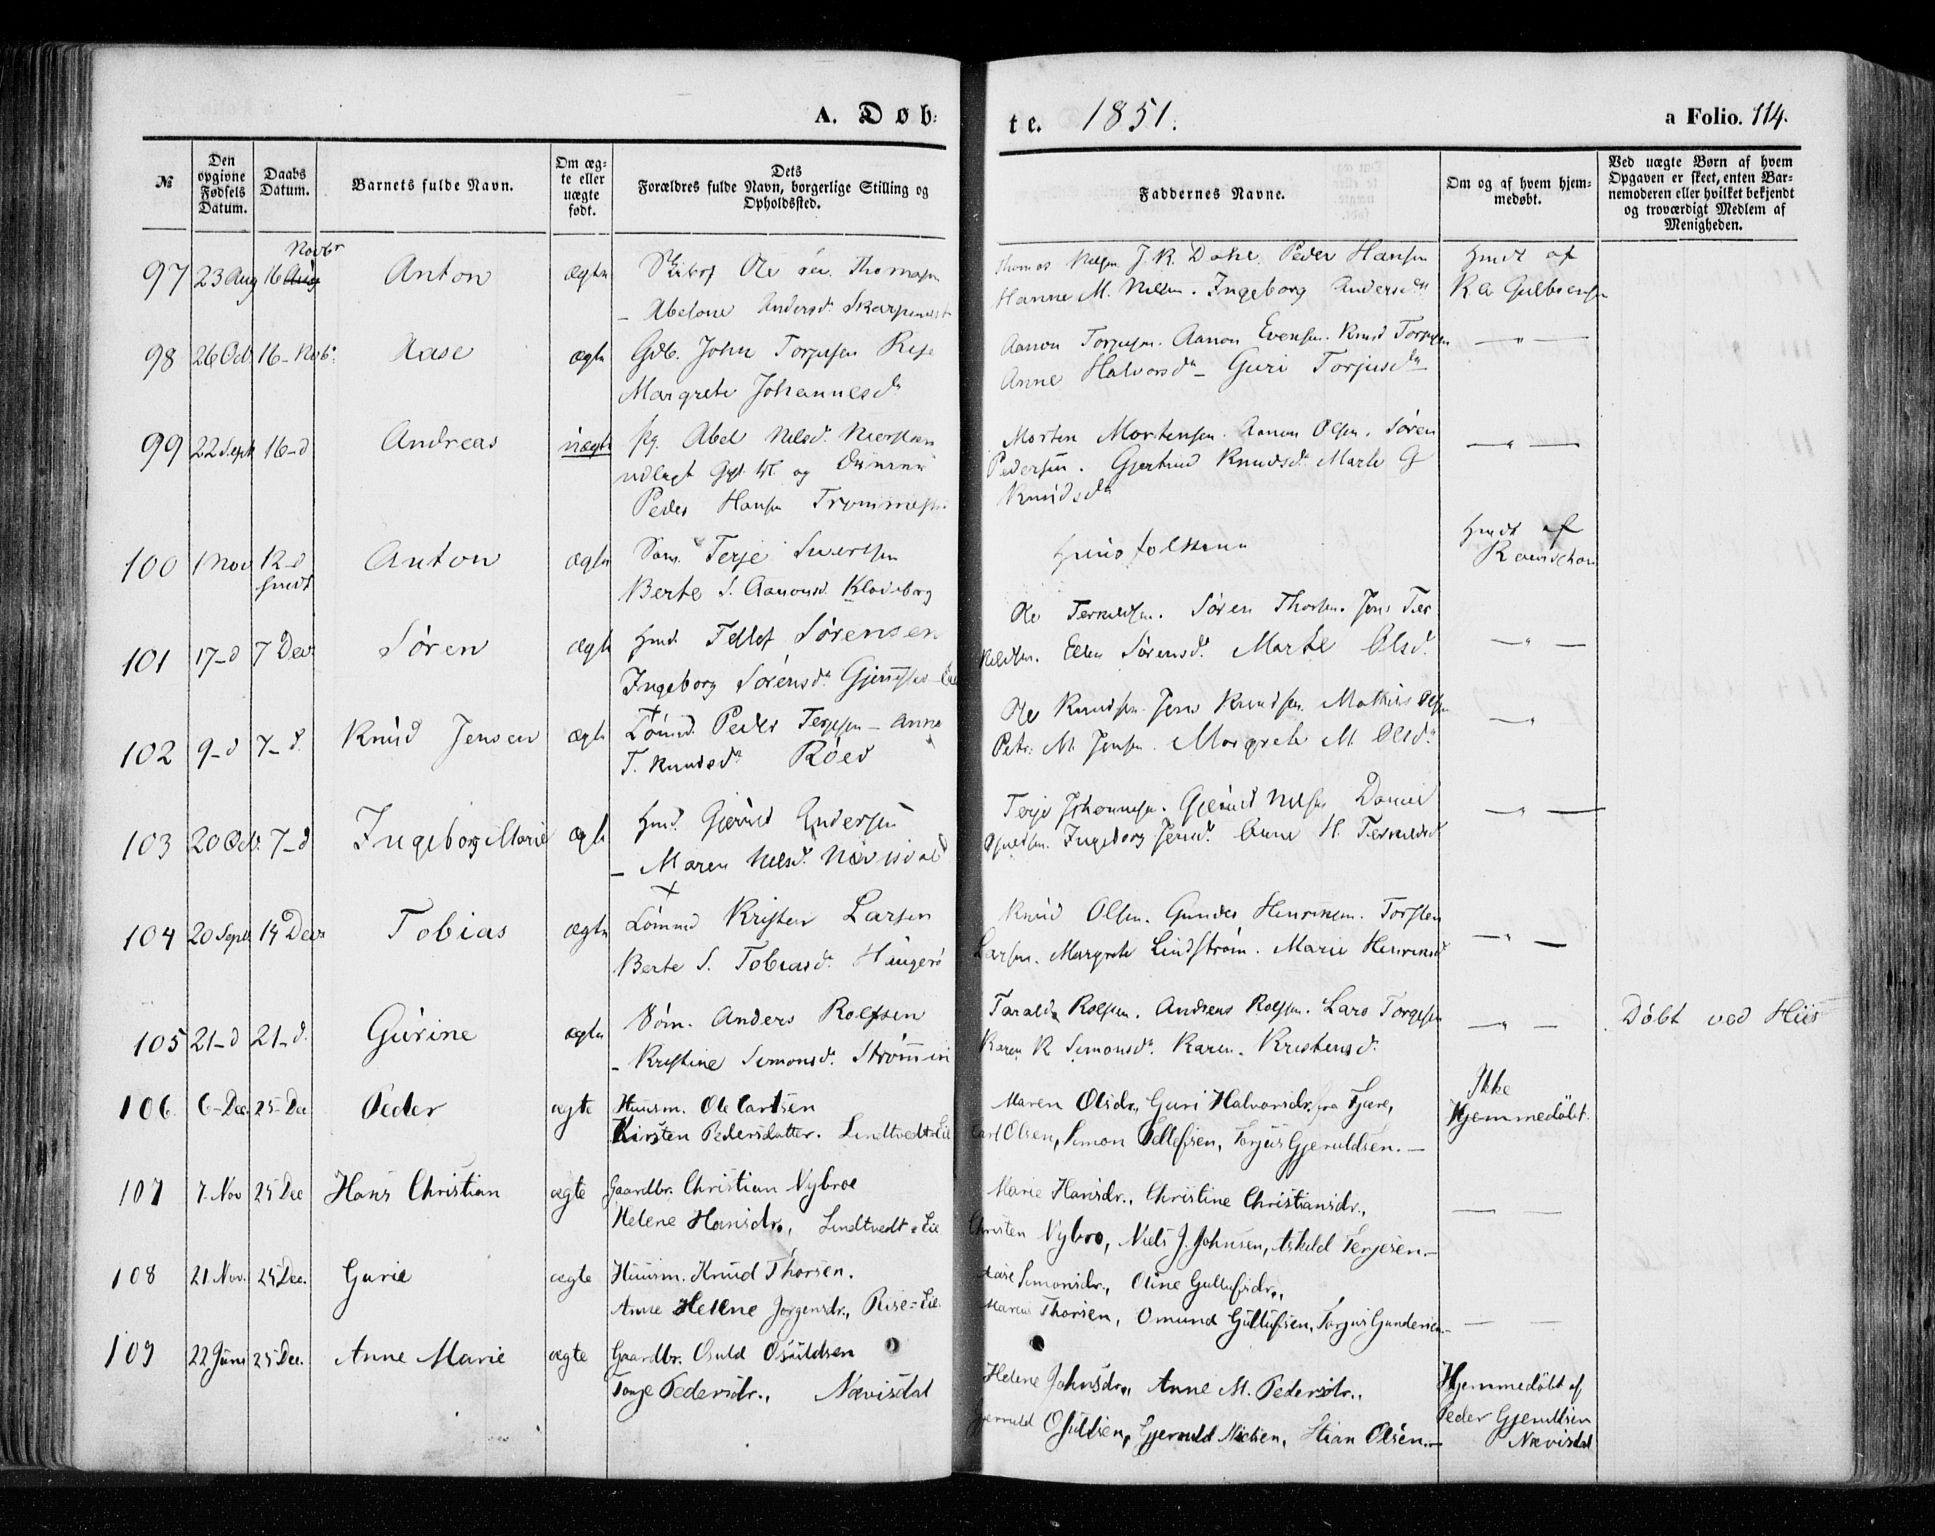 A. Døb:
te. 1851.
a Folio. 114.
№
Den opgivne Fødsels Datum.
Daabs Datum.
Barnets fulde Navn.
Om ægte eller uægte født.
Dets Forældres fulde Navn, borgerlige Stilling og Opholdssted.
Faddernes Navne.
Om og af hvem hjemmedøbt.
Ved uægte Børn af hvem Opgaven er skeet, enten Barnemoderen eller hvilket bekjendt og troværdigt Medlem af Menigheden.
97 23 Aug 16 Novbr Anton ægte Ole Thomasen
Abelone Andersd.
Thomas Nielsen J. R. Dahl Peder Hansen
Hanne M. Nielsen. Ingeborg Andersd.
Hmdt af
98 26 Octb 16 - Novb. Aase ægte Gdb. John Torjusen Rise
Margrete Johannesd.
Aanon Torjusen. Aanon Evensen. Knud Torjusen
Anne Halvorsd. - Guri Torjusd.
— " —
99 22 Sept 16-d Andreas uægte pg. Abel Nilsd.
udlagt og
Peder Hansen
Morten Mortensen. Aanon Olsen. Søren
Pedersen. Gjertrud Knudsd. Marte G
Knudsd.
— " —
100 1 Nov 12-d
hmdt
Anton ægte Terje
Berte S. Aanonsd. Klodeborg
Hmdt af
101 17-d 7 Decr Søren ægte Hmd. Tellef Sørensen
Ingeborg Sørensd.
Ole Terkelsen. Søren Thorsen. Jens Ter
kelsen. Ellen Sørensd. Marte Olsd.
— " —
102 9-d 7-d. Knud Jensen ægte Peder Terjesen - Anne
T. Knudsd. Röed
Ole Knudsen. Jens Knudsen Mathis Olsen
Petr. M. Jensen. Margrete M. Olsd.
— " —
103 20 Octb. 7-d Ingeborg Marie ægte Hmd. Gjeruld Andersen
- Maren Nilsd. Nævisdal
Terje Johannesen. Gjeruld Nilsen Daniel
Ingeborg Jensd. Anne H. Terkelsd.
— " —
104 20 Septb. 14 Decr Tobias ægte Kristen Larsen
Berte S. Tobiasd.
Knud Olsen. Gunder Henriksen. Torsten
Larsen. Margrete Lindstrøm. Marie Henriksd
— " —
105 21-d 21-d. Gúrine ægte Anders Rolfsen
- Kristine Simonsd.
Tarald Rolfsen. Andreas Rolfsen. Lars Torgesen
Karen K Simonsd. Karen. Kristensd.
— " —
Döbt ved Hiis
106 6-Dec 25-Dec Peder ægte Huusm. Ole Carlsen
Kirsten Pedersdatter. Lindtvedt=Eie
Maren Olsdr., Guri Halvorsdr. fra Fjære,
Carl Olsen, Simon Tellefsen, Torjus Gjeruldsen.—
Ikke
Hjemmedöbt.
107 7. Nov 25 Dec Hans Christian ægte Gaardbr. Christian Nybroe
Helene Hansdr., Lindtvedt=Eie
Marie Hansdr., Christine Christiansdr.,
Christen Nybro, Niels J. Johnsen, Askild Terjesen.—
— —
108 21 Nov. 25 Dec. Gurie ægte Huusm. Knud Thorsen.
Anne Hellene Jørgensdr., Rise=Eie.
Aase Simonsdr., Oline Gullufsdr.,
Marcus Thorsen, Omund Gullufsen, Torjus Gundersen.—
— —
109 22 Juni 25 Dec. Anne Marie ægte Gaardbr. Osuld Osuldsen
Tonje Pedersdr., Nævisdal
Helene Johnsdr., Anne M. Pedersdr.,
Gjeruld Osuldsen, Gjeruld Nielsen, Stian Olsen.—
Hjemmedöbt af
Peder Gjeruldsen
Nævisdal